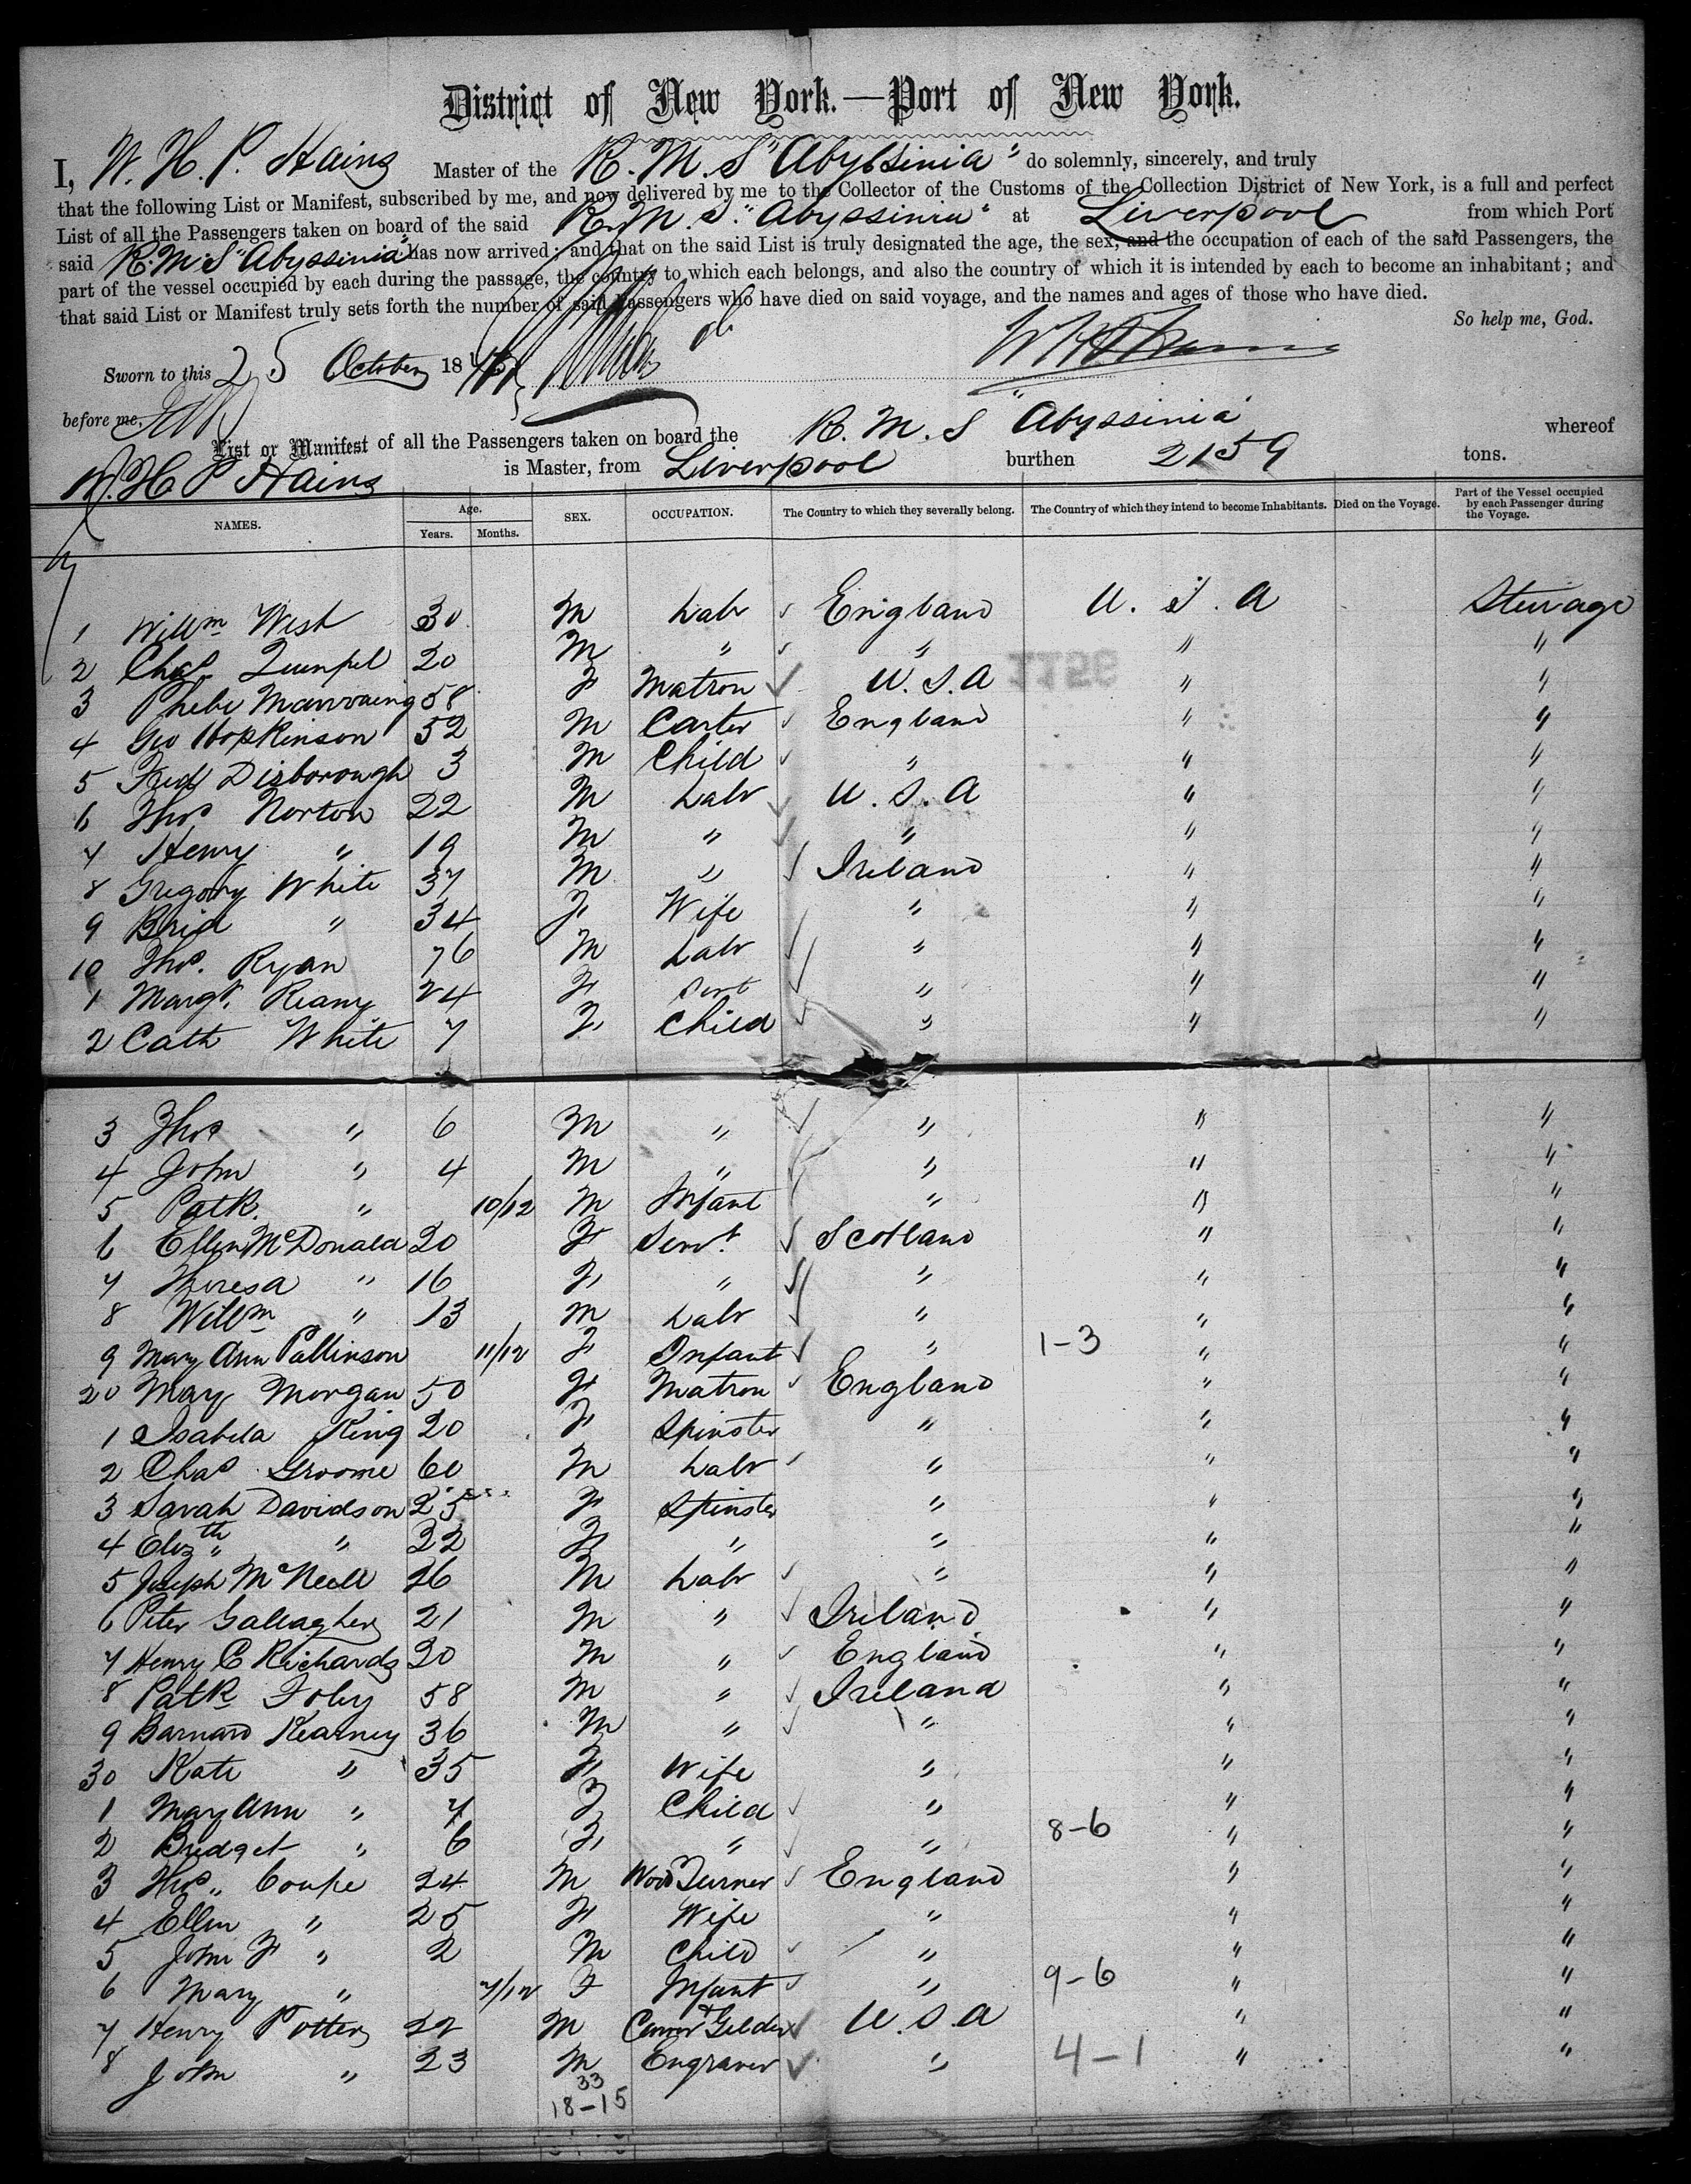 District of New York.—Port of New York.
I, W. H. P. Hains Master of the R. M. S "Abyssinia" do solemnly, sincerely, and truly
that the following List or Manifest, subscribed by me, and now delivered by me to the Collector of the Customs of the Collection District of New York, is a full and perfect
List of all the Passengers taken on board of the said R. M. S. "Abyssinia" at Liverpool from which Port
said R. M. S "Abyssinia" has now arrived; and that on the said List is truly designated the age, the sex, and the occupation of each of the said Passengers, the
part of the vessel occupied by each during the passage, the country to which each belongs, and also the country of which it is intended by each to become an inhabitant; and
that said List or Manifest truly sets forth the number of said Passengers who have died on said voyage, and the names and ages of those who have died.
So help me, God.
Sworn to this 25 October 18
before me,
List or Manifest of all the Passengers taken on board the R. M. S "Abyssinia" whereof
W. H. P Hains is Master, from Liverpool burthen 2159 tons.
NAMES. Age. Years. Months. SEX. OCCUPATION. The Country to which they severally belong. The Country of which they intend to become Inhabitants. Died on the Voyage. Part of the Vessel occupied by each Passenger during the Voyage.
1 Willm West 30 M Labr England U. S. A Steerage
2 Chas 20 M " " " "
3 Phebe 58 F Matron U. S. A " "
4 Geo Hopkinson 52 M Carter England " "
5 Fredk Disborough 3 M Child " " "
6 Thos Norton 22 M Labr U. S. A " "
7 Henry " 19 M " " " "
8 Gregory White 37 M " Ireland " "
9 Brid " 34 F Wife " " "
10 Thos. Ryan 76 M Labr " " "
1 Margt. Reany 24 F Servt " " "
2 Cath White 7 F Child " " "
3 Thos " 6 M " " " "
4 John " 4 M " " " "
5 Patk. " 10/12 M Infant " " "
6 Ellen McDonald 20 F Servt. Scotland " "
7 Theresa " 16 F " " " "
8 Willm " 13 M Labr " " "
9 Mary Ann Pallinson 11/12 F Infant " 1-3 " "
20 Mary Morgan 50 F Matron England " "
1 Isabela King 20 F Spinster " " "
2 Chas Groome 60 M Labr " " "
3 Sarah Davidson 25 F Spinster " " "
4 Elizth " 22 F " " " "
5 Joseph McNeall 26 M Labr " " "
6 Peter Gallagher 21 M " Ireland " "
7 Henry C Richards 30 M " England " "
8 Patk Foley 58 M " Ireland " "
9 Barnard Kearney 36 M " " " "
30 Kate " 35 F Wife " " "
1 Mary Ann " 7 F Child " " "
2 Bridget " 6 F " " 8-6 " "
3 Thos " Coupe 24 M Wood Turner England " "
4 Ellen " 25 F Wife " " "
5 John F " 2 M Child " " "
6 Mary " 7/12 F Infant " 9-6 " "
7 Henry Potter 22 M Carver & Gilder U. S. A " "
8 John " 23 M Engraver " 4-1 " "
33
18-15